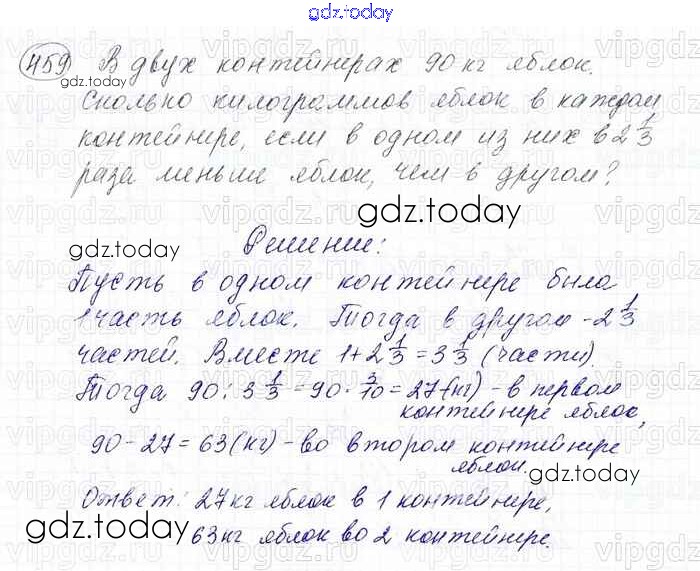 gdz.today
459 В двух контейнерах 90 кг яблок.
gdz.today
Сколько килограммов яблок в каждом
контейнере, если в одном из них в 2 1/3
раза меньше яблок, чем в другом?
gdz.today
gdz.today
Решение:
Пусть в одном контейнере была
1 часть яблок. Тогда в другом - 2 1/3
частей. Вместе 1 + 2 1/3 = 3 1/3 (части)
Тогда 90 : 3 1/3 = 90 · 3/10 = 27 (кг) - в первом
контейнере яблок,
90 - 27 = 63 (кг) - во втором контейнере
яблок.
gdz.today
Ответ: 27 кг яблок в 1 контейнере,
gdz.today
63 кг яблок во 2 контейнере.